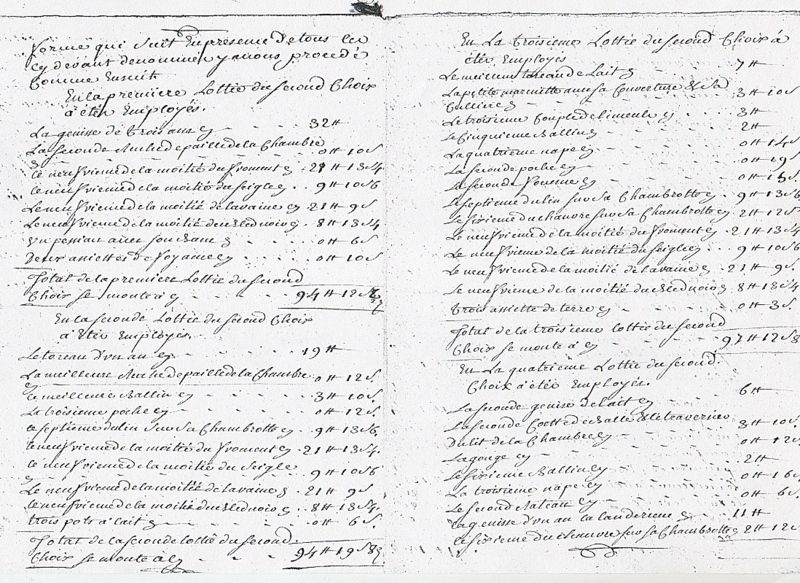 forme qui suit En presence de tous les
cy devant denommé y avons procedé
Comme Ensuit
En la premiere Lottie du second Choix
a étée Employés.
La genise de trois ans ey 32 ₶
La seconde Ruche de paille de la Chambre
ey 0 ₶ 10 S
le neufvieme de la moitié du froment ey 21 ₶ 13 S 4
le neufvieme de la moitié du seigle ey 9 ₶ 10 S 6
Le neufvieme de la moitié de lavaine ey 21 ₶ 9 S
Le neufvieme de la moitié du bled noir ey 8 ₶ 13 S 4
0 ₶ 6 S
Deux assiettes de foyance ey 0 ₶ 10 S
Total de la premiere Lottie du second
Choix se monte à ey 94 ₶ 12 S
En la seconde Lottie du second Choix
a étée Employés.
Le toreau d'un an ey 19 ₶
La meilleure Ruche de paille de la Chambre
ey 0 ₶ 12 S
Le meilleure Ballin ey 3 ₶ 10 S
La troisieme poche ey 0 ₶ 12 S
le septieme du lin sur sa Chambrotte ey 9 ₶ 13 S 6
le neufvieme de la moitié du froment ey 21 ₶ 13 S 4
le neufvieme de la moitié du seigle
9 ₶ 10 S 6
Le neufvieme de la moitié de lavaine ey 21 ₶ 9 S
le neufvieme de la moitié du bled noir ey 8 ₶ 13 S 4
trois pots a lait ey 0 ₶ 6 S
Total de la seconde lottie du second
Choix se monte à ey 94 ₶ 19 S 8
En La troisieme Lottie du second Choix à
étée Employés
Le meilleur de Lait ey 7 ₶
La petite marmitte avec sa Couverture & sa
Culliere ey 3 ₶ 10 S
Le troisieme Couple de ey 3 ₶
Le Cinquieme Ballin ey 2 ₶
La quatrieme nape ey 0 ₶ 14 S
La seconde poche ey 0 ₶ 19 S
La seconde ey 0 ₶ 15 S
Le septieme du lin sur sa Chambrotte ey 9 ₶ 13 S 6
Le sixieme du chanvre sur sa Chambrotte ey 2 ₶ 12 S
Le neufvieme de la moitié du froment ey 21 ₶ 13 S 4
Le neufvieme de la moitié du seigle ey 9 ₶ 10 S 6
Le neufvieme de la moitié de lavaine ey 21 ₶ 9 S
Le neufvieme de la moitié du bled noir ey 8 ₶ 13 S 4
trois assiette de terre ey 0 ₶ 3 S
Total de la troisieme lottie du second
Choix se monte à ey 97 ₶ 12 S 8
En La quatrieme Lottie du second
Choix a étée Employés.
La seconde genise de lait ey 6 ₶
La seconde Coette de Balle & le traversier
Du lit de la Chambre ey 3 ₶ 10 S
La gouge ey 0 ₶ 12 S
Le sixieme Ballin ey 2 ₶
La troisieme nape ey 0 ₶ 16 S
Le second Rateau ey 0 ₶ 6 S
La genisse d'un an la ey 11 ₶
Le sixieme du chanvre sur sa Chambrotte ey 2 ₶ 12 S